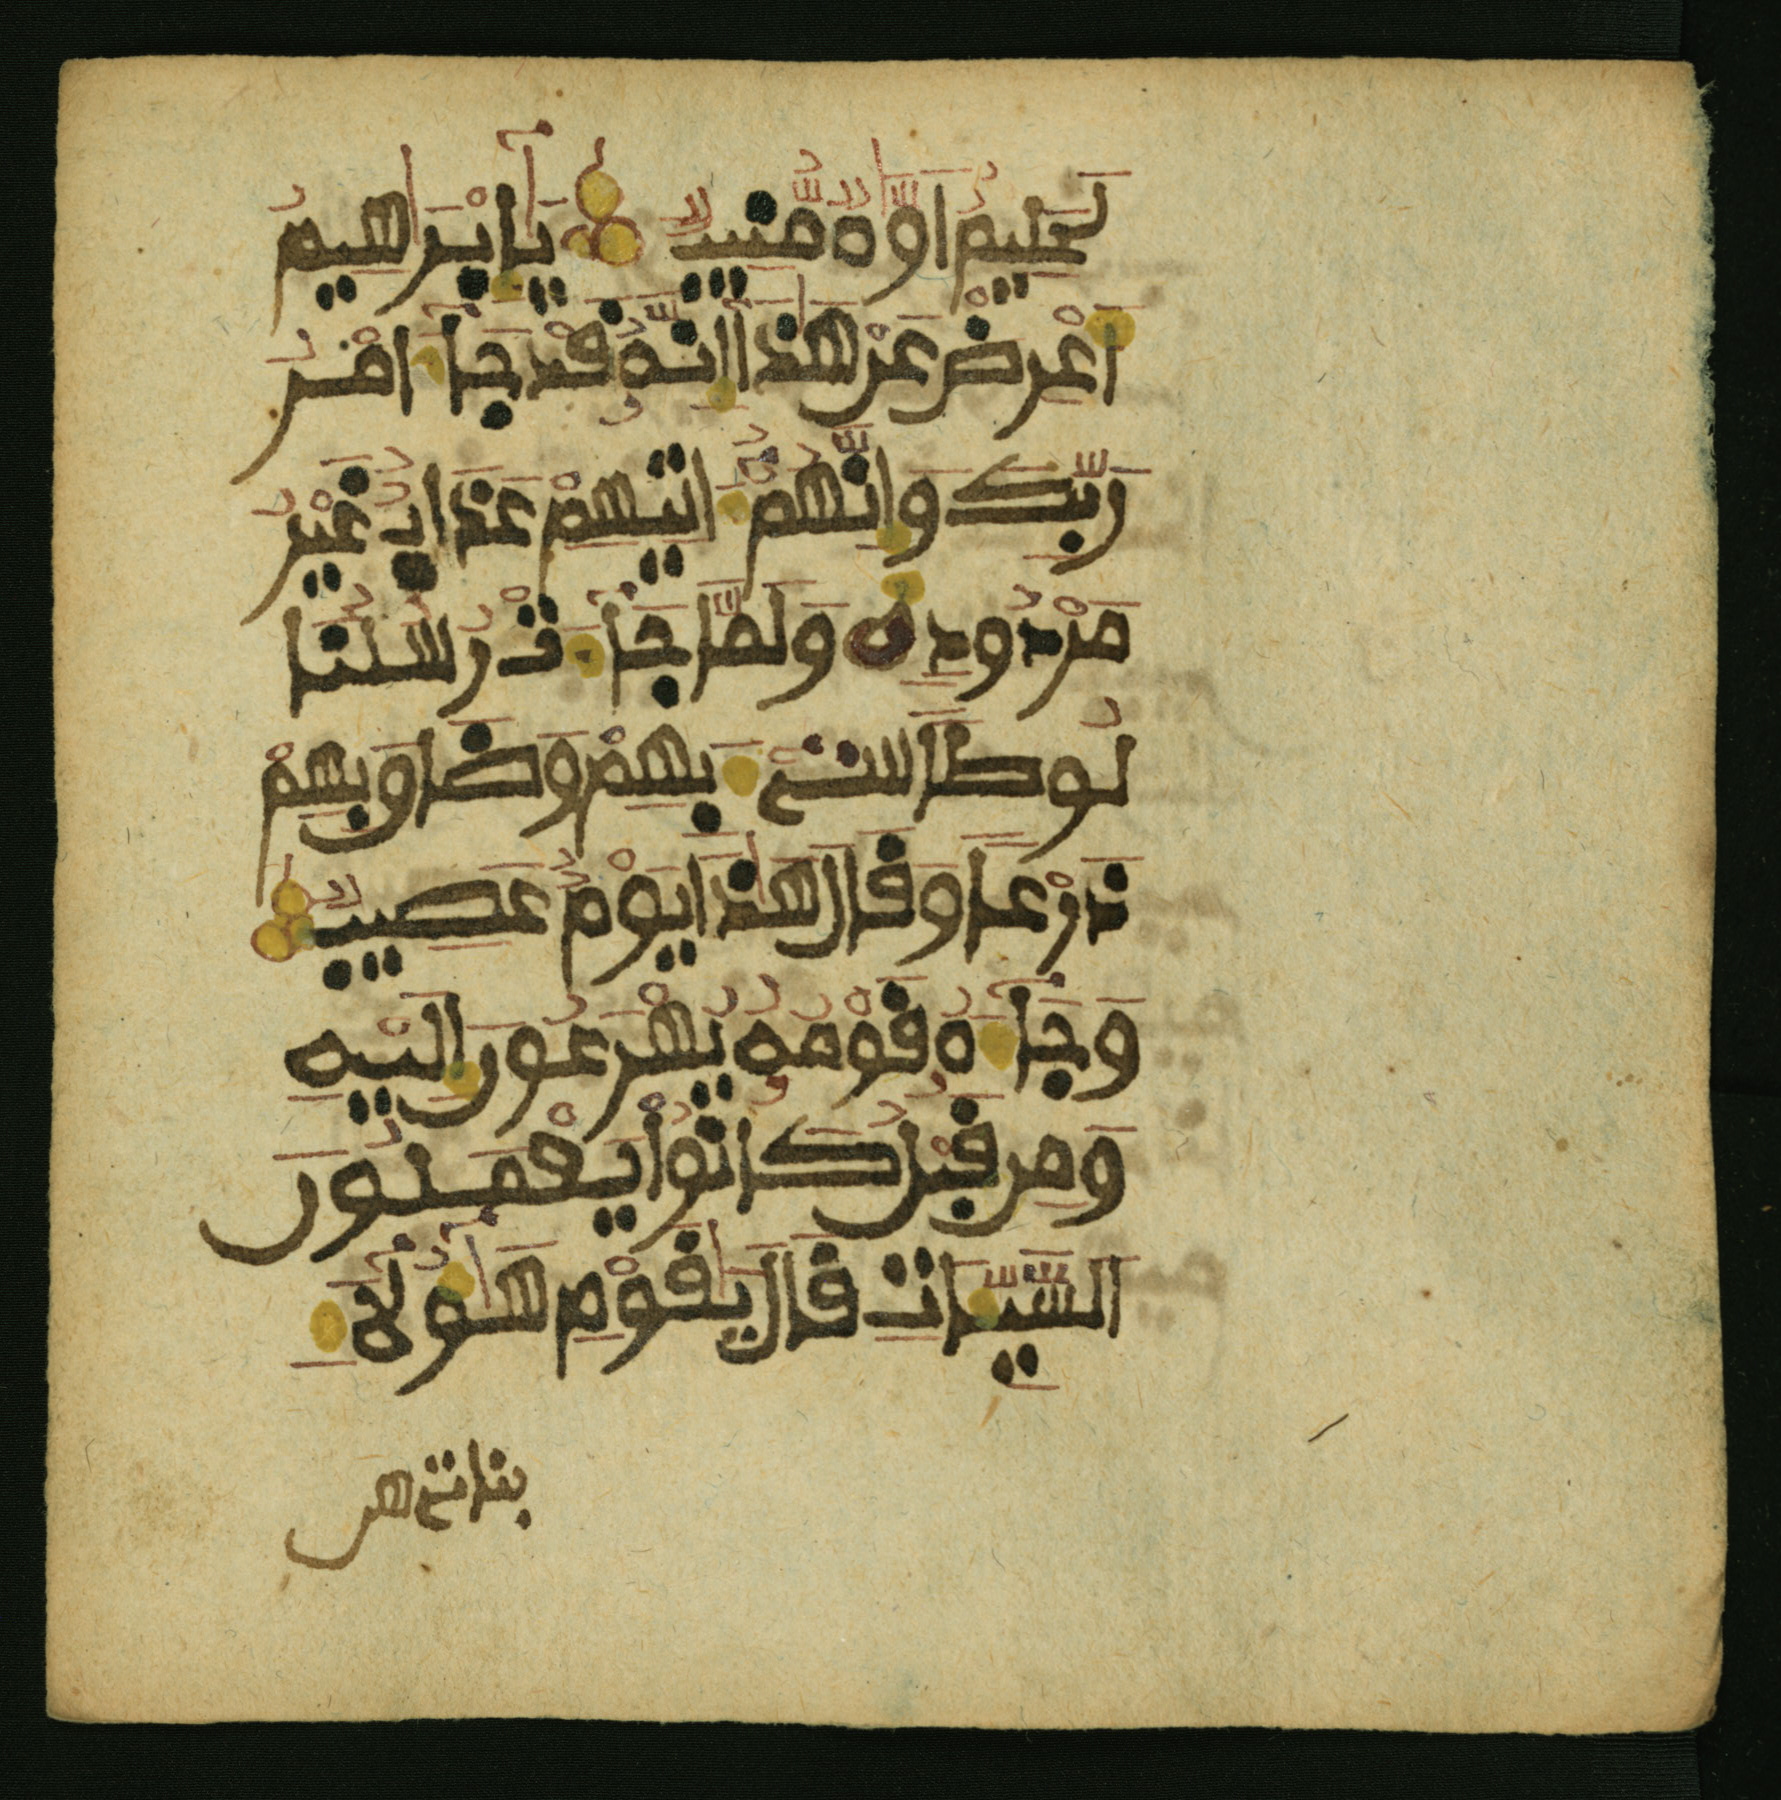 لَحَلِيمٌ أَوَّٰهٌ مُّنِيبٌ يَٰٓإِبْرَٰهِيمُ
أَعْرِضْ عَنْ هَٰذَآ إِنَّهُۥ قَدْ جَآءَ امْرُ
رَبِّكَ وَإِنَّهُمُۥٓ ءَاتِيهِمْ عَذَابٌ غَيْرُ
مَرْدُودٍ وَلَمَّا جَآءَتْ رُسُلُنَا
لُوطًا سِيٓءَ بِهِمْ وَضَاقَ بِهِمْ
ذَرْعًا وَقَالَ هَٰذَا يَوْمٌ عَصِيبٌ
وَجَآءَهُۥ قَوْمُهُۥ يُهْرَعُونَ إِلَيْهِ
وَمِن قَبْلُ كَانُوا۟ يَعْمَلُونَ
السَّيِّـَٔاتِ قَالَ يَٰقَوْمِ هَٰٓؤُلَآءِ
بناتي هن